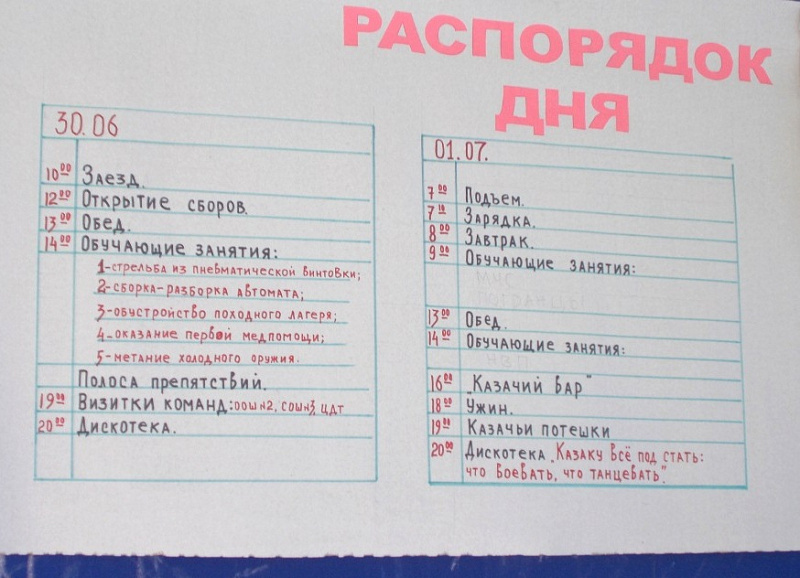 РАСПОРЯДОК
ДНЯ
30.06
10⁰⁰ Заезд.
12⁰⁰ Открытие сборов.
13⁰⁰ Обед.
14⁰⁰ Обучающие занятия:
1-стрельба из пневматической винтовки;
2-сборка-разборка автомата;
3-обустройство походного лагеря;
4-оказание первой медпомощи;
5-метание холодного оружия.
Полоса препятствий.
19⁰⁰ Визитки команд: ООШ №2, СОШ №3, ЦДТ
20⁰⁰ Дискотека.
01.07.
7⁰⁰ Подъем.
7¹⁰ Зарядка.
8⁰⁰ Завтрак.
9⁰⁰ Обучающие занятия:
13⁰⁰ Обед.
14⁰⁰ Обучающие занятия:
16⁰⁰ „Казачий вар"
18⁰⁰ Ужин.
19⁰⁰ Казачьи потешки
20⁰⁰ Дискотека „Казаку всё под стать:
что воевать, что танцевать".